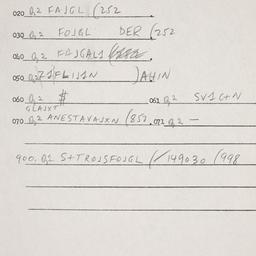 020 0,2 FAJGL (252
030 0,2 FOJGL DER (252
040 0,2 FOJGAL1
050 0,2 )AHIN
060 0,2 $ 061 0,2 SV1G+N
GLAJXT
070 0,2 ANESTAVAJXN (850 071 0,2 —
900. 0,1 S+TROJSFOJGL (/149030 (998